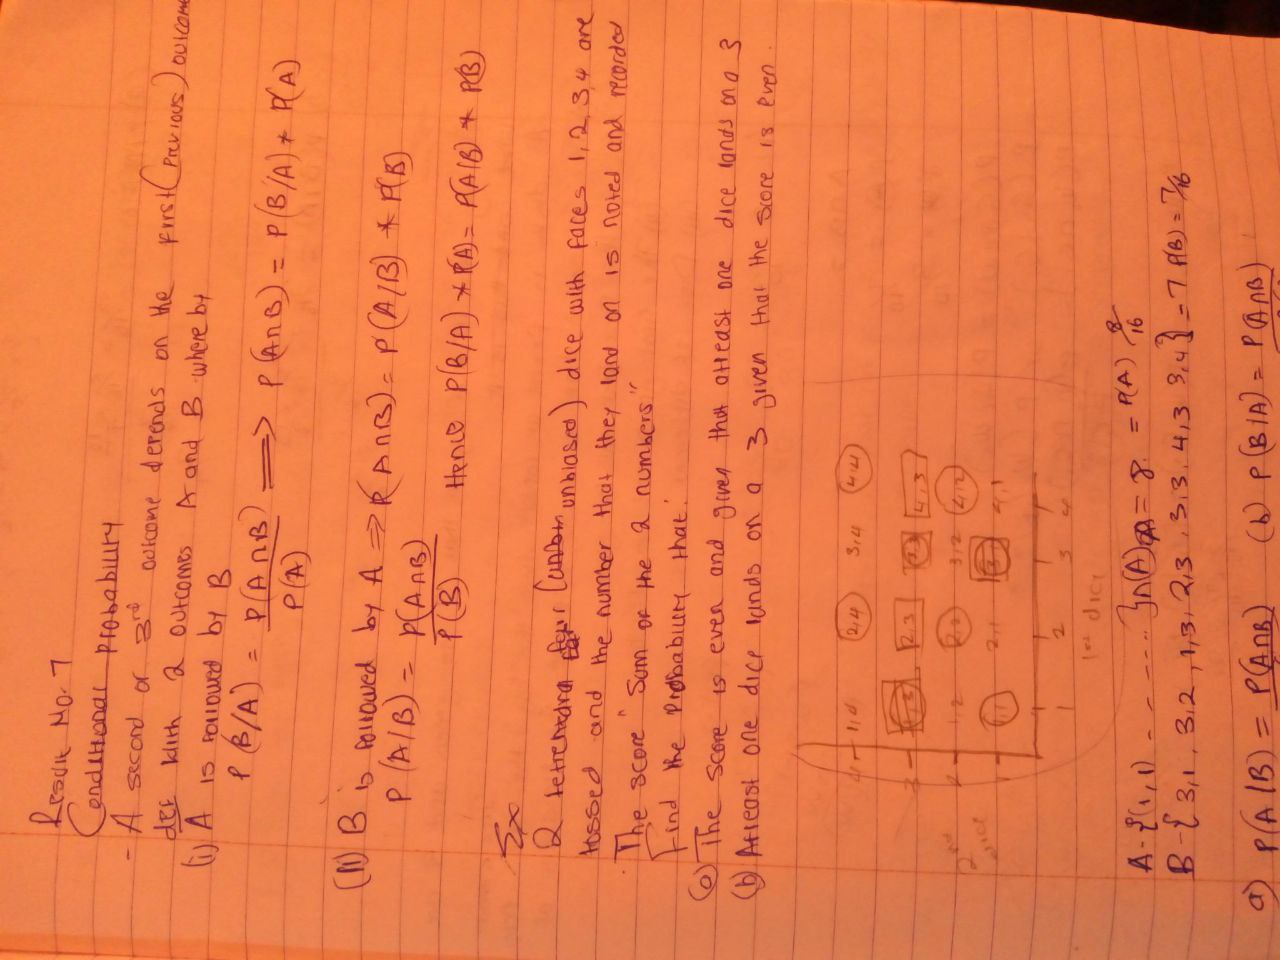 Result No. 7
Conditional probability
- A second or 3rd outcome depends on the first (previous) outcome
def With 2 outcomes A and B where by
(i) A is followed by B
P(B/A) = P(A∩B)/P(A) ⟹ P(A∩B) = P(B/A) * P(A)
(ii) B is followed by A ⟹ P(A∩B) = P(A/B) * P(B)
P(A/B) = P(A∩B)/P(B) Hence P(B/A) * P(A) = P(A/B) * P(B)
Ex
2 tetrehedra four (unbiased) dice with faces 1, 2, 3, 4 are
tossed and the number that they land on is noted and recorded
The score "Sum of the 2 numbers"
Find the Probability that:
(a) The score is even and given that atleast one dice lands on a 3
(b) Atleast one dice lands on a 3 given that the score is even.
4 1,4 2,4 3,4 4,4
3 1,3 2,3 3,3 4,3
2 1,2 2,2 3,2 4,2
1 1,1 2,1 3,1 4,1
2nd dice
1 2 3 4
1st dice
A - {(1,1) - - - - - - - } n(A) = 8. = P(A) 8/16
B - { 3,1, 3,2, 1,3, 2,3, 3,3, 4,3 3,4 } = 7 P(B) = 7/16
a) P(A/B) = P(A∩B) (b) P(B/A) = P(A∩B)